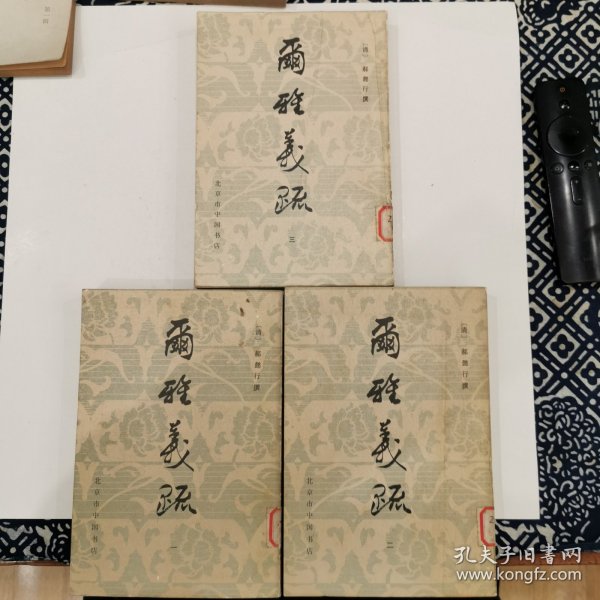 爾雅義疏
[清] 郝懿行撰
三
北京市中国书店
爾雅義疏
[清] 郝懿行撰
一
北京市中国书店
爾雅義疏
[清] 郝懿行撰
二
北京市中国书店
孔夫子旧书网
www.kongfz.com